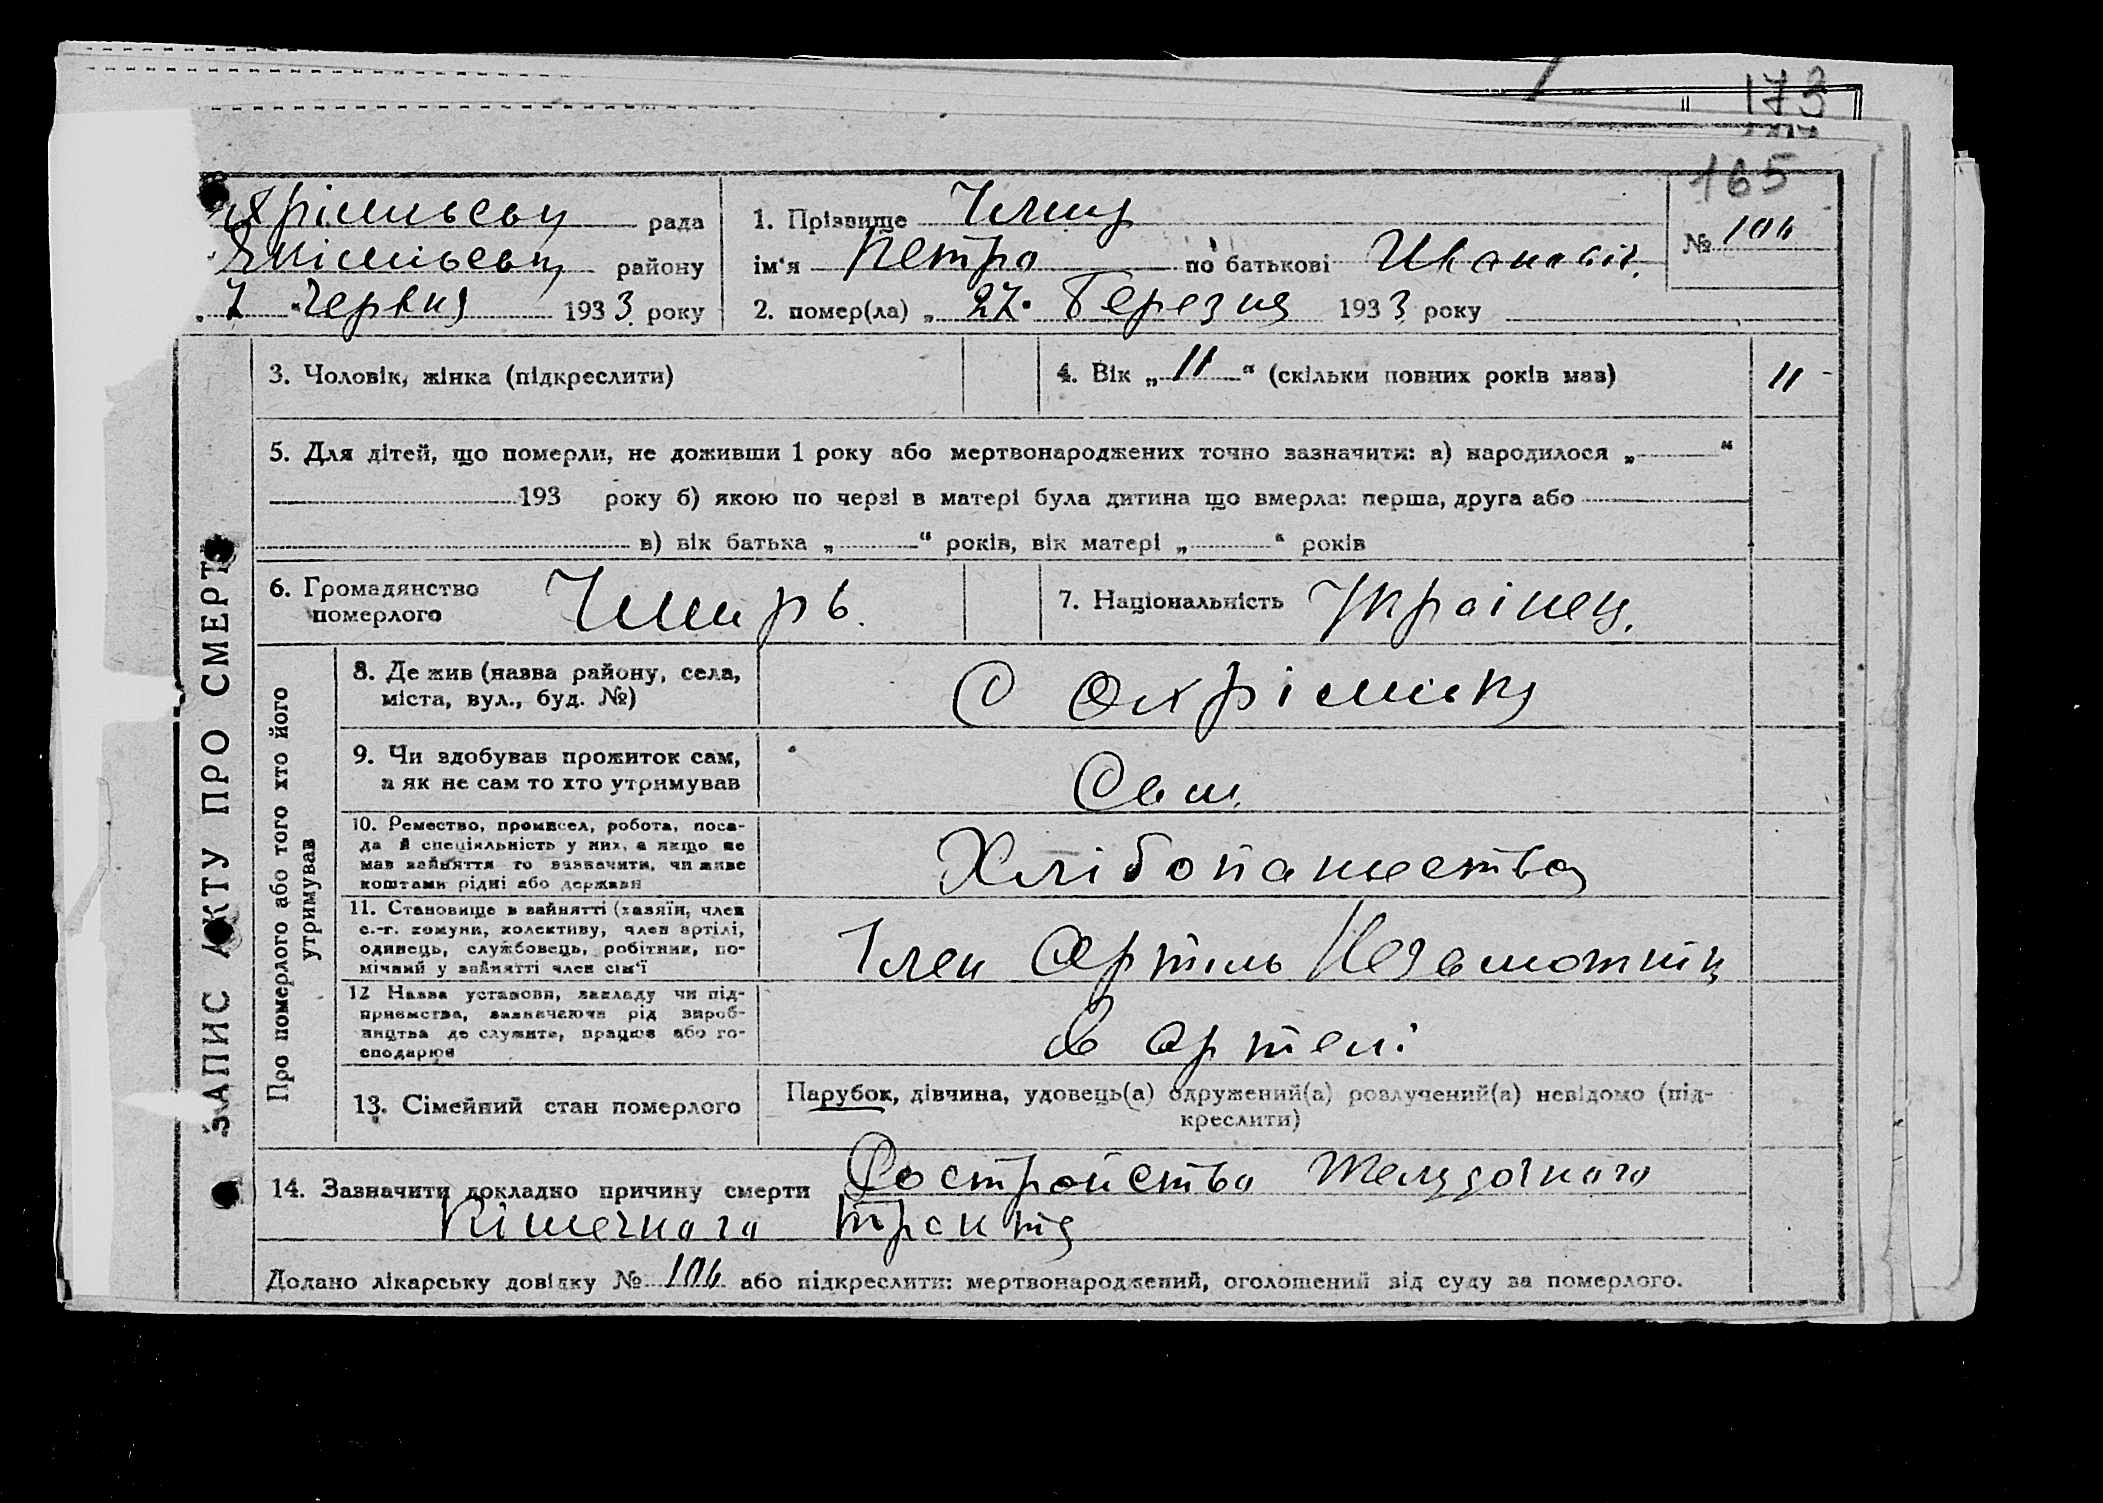 173
165
рада
району
7 " Червня 1933 року
1. Прізвище
ім'я Петро по батькові Иванович.
№ 106
2. помер(ла) „ 27 " Березня 1933 року
3. Чоловік, жінка (підкреслити)
4. Вік „ 11 " (скільки повних років мав)
11 -
5. Для дітей, що померли, не доживши 1 року або мертвонароджених точно зазначити: а) народилося „ "
193 року б) якою по черзі в матері була дитина що вмерла: перша, друга або
в) вік батька „ " років, вік матері „ " років
6. Громадянство
померлого
7. Національність Українец.
ЗАПИС АКТУ ПРО СМЕРТЬ
Про померлого або того хто його
утримував
8. Де жив (назва району, села,
міста, вул., буд. №)
С Охрімівка
9. Чи здобував прожиток сам,
а як не сам то хто утримував
Сам.
10. Ремество, промисел, робота, поса-
да й спеціяльність у них, а якщо не
мав зайняття то зазначити, чи живе
коштами рідні або держави
Хлібопашество
11. Становище в зайнятті (хазяїн, член
с.-г. комуни, колективу, член артілі,
одинець, службовець, робітник, по-
мічний у зайнятті член сім'ї
Член Артиль Незаможник
12 Назва установи, закладу чи під-
приємства, зазначаючи рід вироб-
ництва де служить, працює або го-
сподарює
в артелі
13. Сімейний стан померлого
Парубок, дівчина, удовець(а) одружений(а) розлучений(а) невідомо (під-
креслити)
14. Зазначити докладно причину смерти Росстройство Желудочного
Кішечного тракта
Додано лікарську довідку № 106 або підкреслити: мертвонароджений, оголошений від суду за померлого.